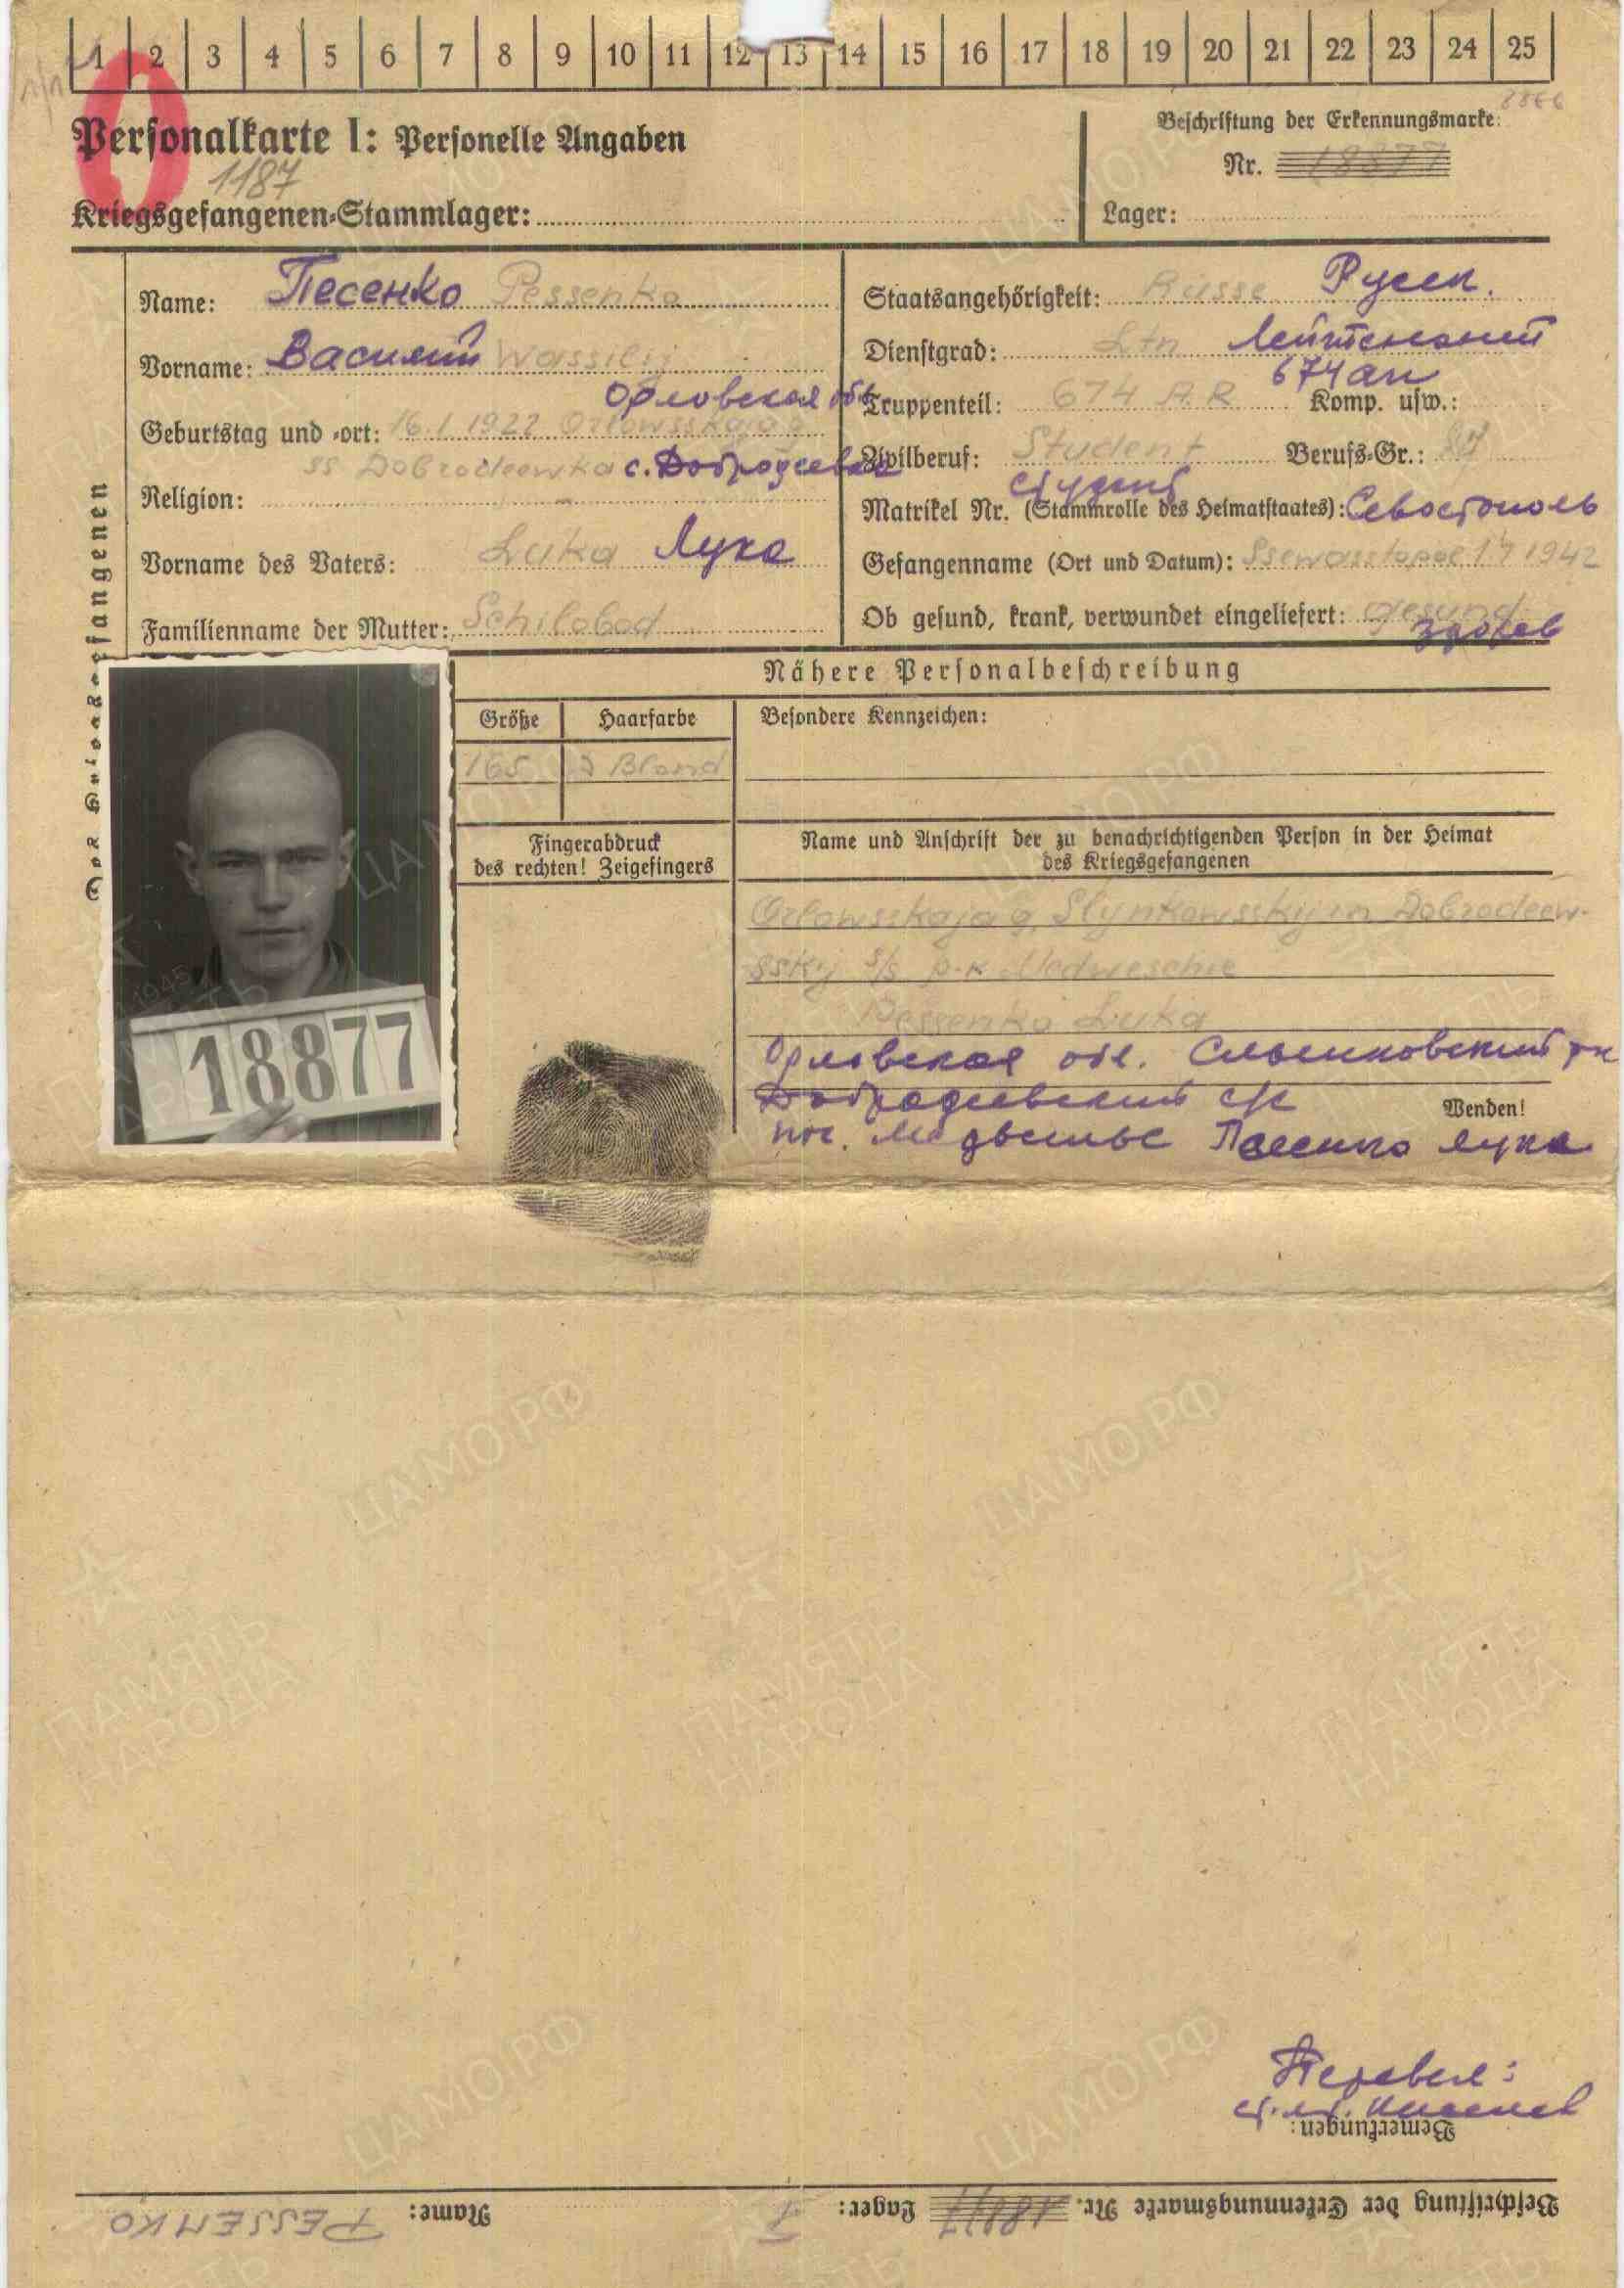 1 2 3 4 5 6 7 8 9 10 11 12 13 14 15 16 17 18 19 20 21 22 23 24 25
Personalkarte I: Personelle Angaben
1187
Kriegsgefangenen-Stammlager:
Beschriftung der Erkennungsmarke:
Nr. 18877
Lager:
Des Kriegsgefangenen
Name: Песенко Pessenko
Vorname: Василий Wassilij
Орловская обл
Geburtstag und -ort: 16.1.1922 Orlowsskaja g
ss Dobrodeewka с. Добродеевка
Religion: –
Vorname des Vaters: Luka Лука
Familienname der Mutter: Schilobod
Staatsangehörigkeit: Russe Русск.
Dienstgrad: Ltn Лейтенант
674 ап
Truppenteil: 674 A.R Komp. usw.:
Zivilberuf: Student Berufs-Gr.:
студент
Matrikel Nr. (Stammrolle des Heimatstaates): Севостополь
Gefangenname (Ort und Datum): Ssewasstopol 1.7 1942
Ob gesund, krank, verwundet eingeliefert: gesund
здоров
Nähere Personalbeschreibung
Größe Haarfarbe Besondere Kennzeichen:
165 Blond
Fingerabdruck
des rechten! Zeigefingers
Name und Anschrift der zu benachrichtigenden Person in der Heimat
des Kriegsgefangenen
Orlowsskaja g, Slynkowsskij rn Dobrodeew-
sskij s/s p-k Medweschie
Pessenko Luka
Орловская обл. Слынковский рн
Добродеевский с/с
пос. Медвежье Песенко Лука
Wenden!
18877
Перевел:
ст. лт.
Bemerkungen:
Beschriftung der Erkennungsmarke Nr. 18877 Lager: Name: PESSENKO
ЦАМО.РФ
ПАМЯТЬ
НАРОДА